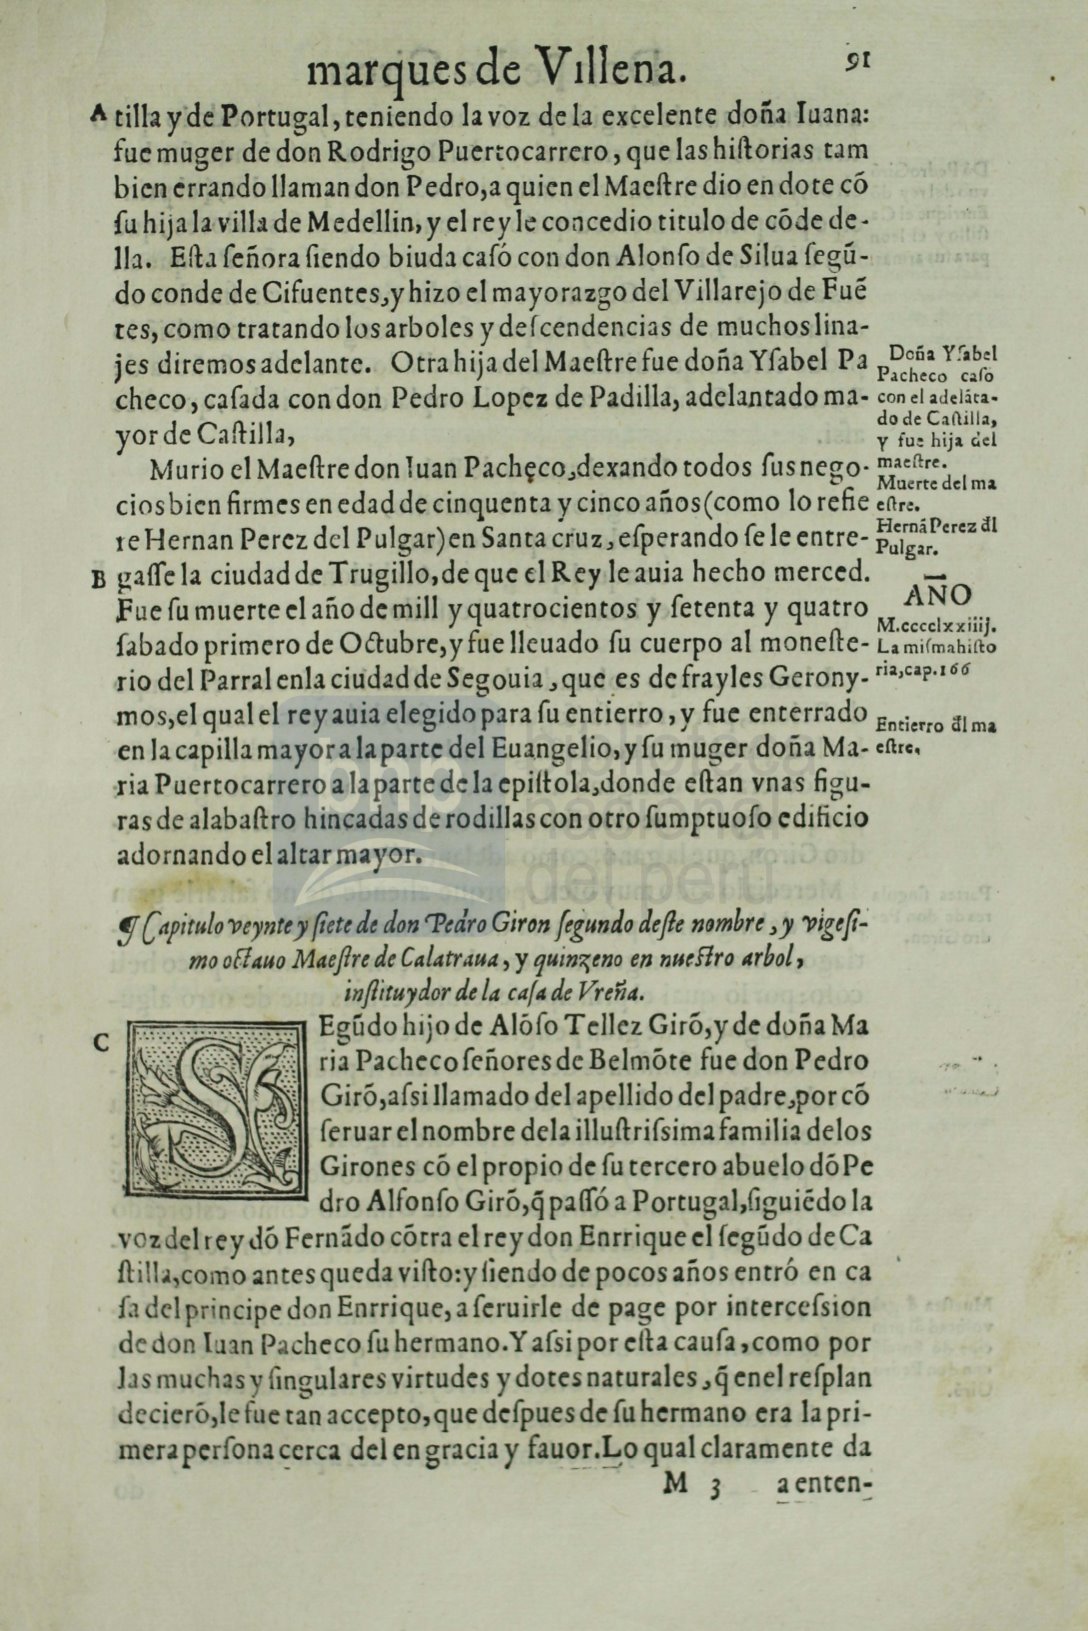 marques de Villena.
91
A
tilla y de Portugal, teniendo la voz de la excelente doña Iuana:
fue muger de don Rodrigo Puertocarrero, que las hiſtorias tam
bien errando llaman don Pedro, a quien el Maeſtre dio en dote cō
ſu hija la villa de Medellin, y el rey le concedio titulo de cōde de-
lla. Eſta ſeñora ſiendo biuda caſó con don Alonſo de Silua ſegū-
do conde de Cifuentes, y hizo el mayorazgo del Villarejo de Fuē
tes, como tratando los arboles y deſcendencias de muchos lina-
jes diremos adelante. Otra hija del Maeſtre fue doña Yſabel Pa
checo, caſada con don Pedro Lopez de Padilla, adelantado ma-
yor de Caſtilla,
Doña Yſabel
Pacheco caſo
con el adelāta-
do de Caſtilla,
y fue hija del
maeſtre.
Murio el Maeſtre don Iuan Pacheco, dexando todos ſus nego-
cios bien firmes en edad de cinquenta y cinco años (como lo refie
re Hernan Perez del Pulgar) en Santa cruz, eſperando ſe le entre-
B
gaſſe la ciudad de Trugillo, de que el Rey le auia hecho merced.
Fue ſu muerte el año de mill y quatrocientos y ſetenta y quatro
ſabado primero de Octubre, y fue lleuado ſu cuerpo al moneſte-
rio del Parral en la ciudad de Segouia, que es de frayles Gerony-
mos, el qual el rey auia elegido para ſu entierro, y fue enterrado
en la capilla mayor a la parte del Euangelio, y ſu muger doña Ma-
ria Puertocarrero a la parte de la epiſtola, donde eſtan vnas figu-
ras de alabaſtro hincadas de rodillas con otro ſumptuoſo edificio
adornando el altar mayor.
Muerte del ma
eſtre.
Hernā Perez đl
Pulgar.
AÑO
M.cccclxxiiij.
La miſma hiſto
ria, cap. 166
Entierro đl ma
eſtre.
biblioteca
nacional
del perú
¶ Capitulo veynte y ſiete de don Pedro Giron ſegundo deſte nombre, y vigeſi-
mo octauo Maeſtre de Calatraua, y quinzeno en nueſtro arbol,
inſtituydor de la caſa de Vreña.
C
SEgūdo hijo de Alōſo Tellez Girō, y de doña Ma
ria Pacheco ſeñores de Belmōte fue don Pedro
Girō, aſsi llamado del apellido del padre, por cō
ſeruar el nombre de la illuſtriſsima familia de los
Girones cō el propio de ſu tercero abuelo dō Pe
dro Alfonſo Girō, q̄ paſſó a Portugal, ſiguiēdo la
voz del rey dō Fernādo cōtra el rey don Enrrique el ſegūdo de Ca
ſtilla, como antes queda viſto: y ſiendo de pocos años entró en ca
ſa del principe don Enrrique, a ſeruirle de page por interceſsion
de don Iuan Pacheco ſu hermano. Y aſsi por eſta cauſa, como por
las muchas y ſingulares virtudes y dotes naturales, q̄ en el reſplan
decierō, le fue tan accepto, que deſpues de ſu hermano era la pri-
mera perſona cerca del en gracia y fauor. Lo qual claramente da
M 3
a enten-